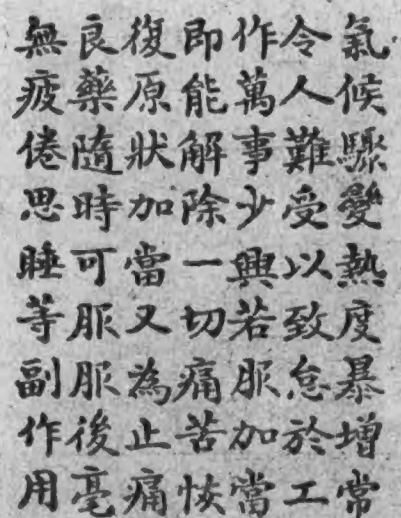 氣候驟變熱度暴增常
令人難受以致怠於工
作萬事少興若服加當
即能解除一切痛苦恢
復原狀加當又為止痛
良藥隨時可服服後毫
無疲倦思睡等副作用